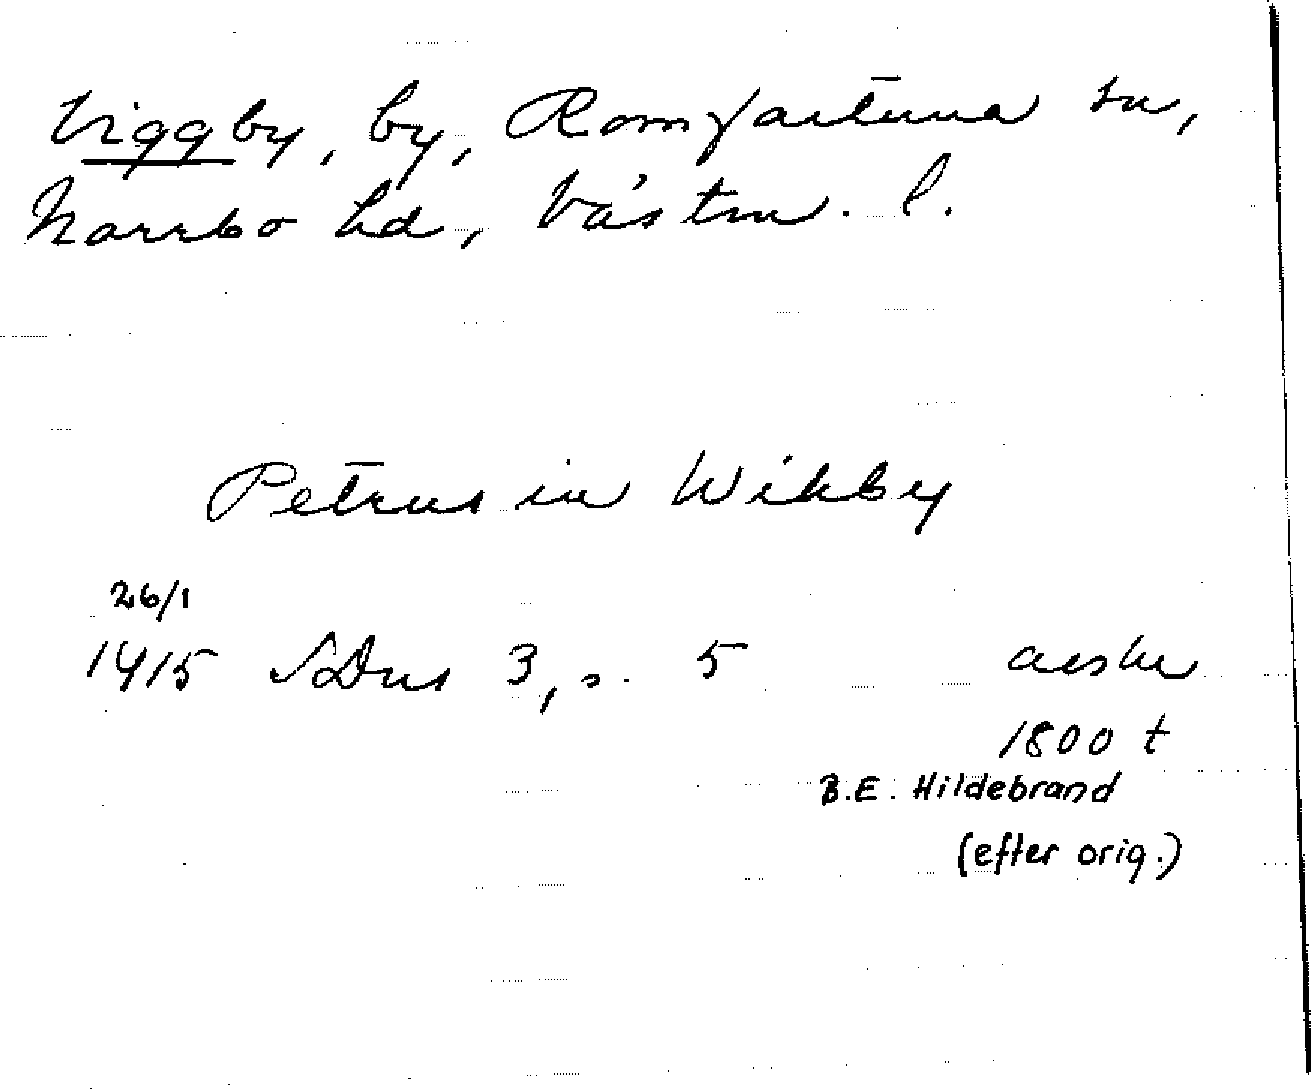 Viggby, by, Romfartuna sn,
Norrbo hd, Västm. l.
Petrus in Wikby
26/1
1415 SDns 3, s. 5
1800 t
B.E. Hildebrand
(efter orig.)